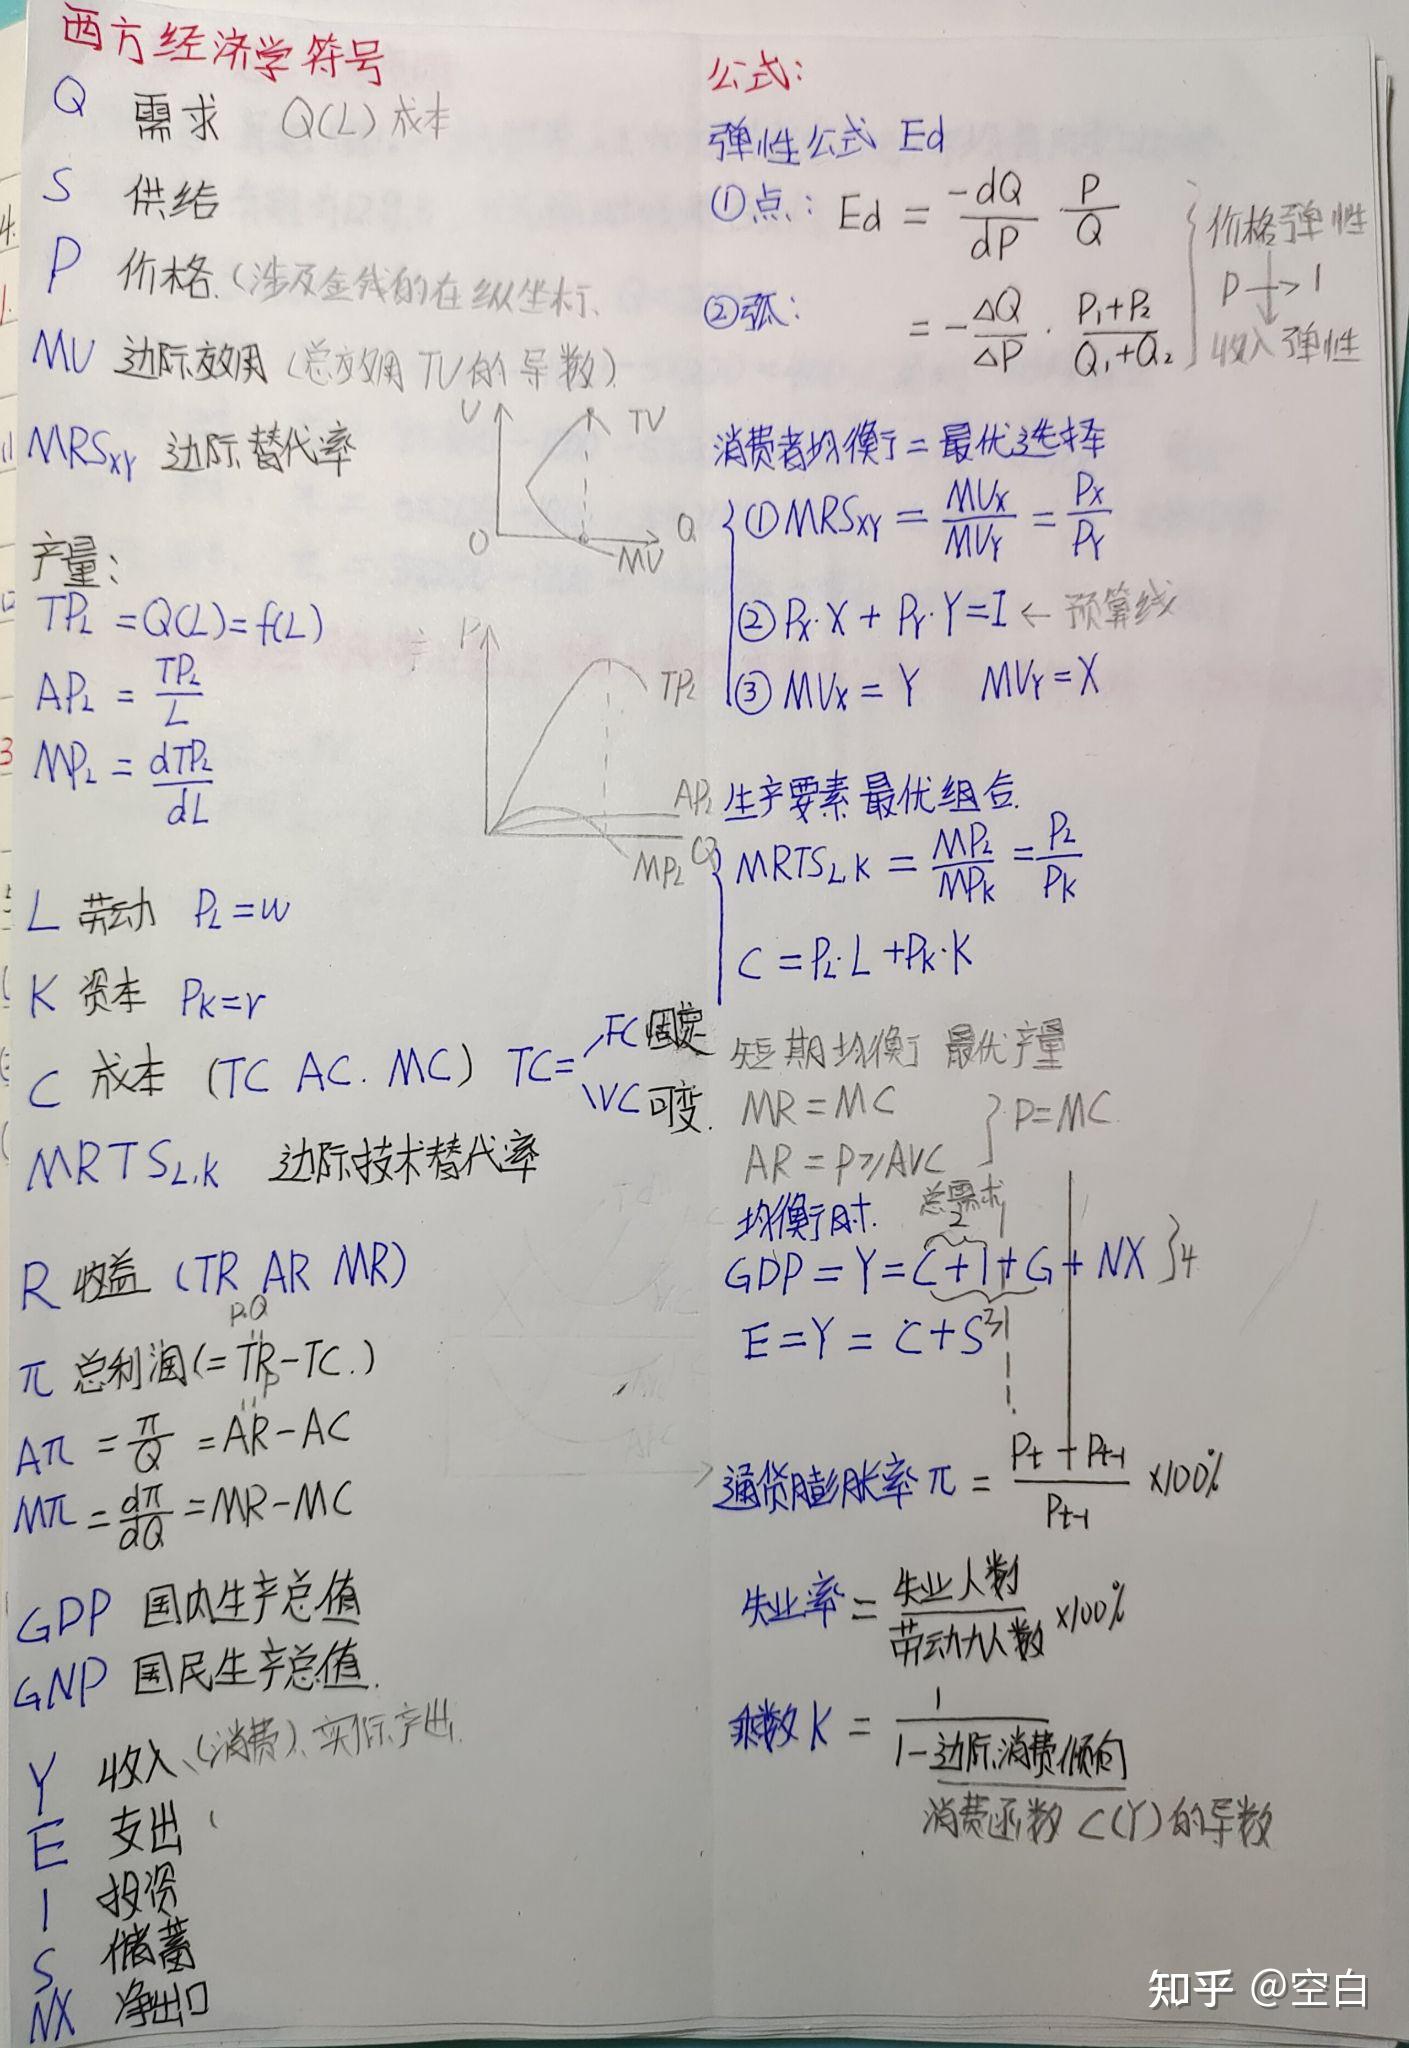 西方经济学符号
Q 需求 Q(L)成本
S 供给
P 价格.(涉及金钱的在纵坐标、
MU 边际效用(总效用TU的导数)
MRSXY 边际替代率
U TU
O Q
MU
产量:
TPL = Q(L) = f(L)
APL = TPL/L
MPL = dTPL/dL
P TPL
APL
Q
MPL
L 劳动 PL=w
K 资本 PK=r
C 成本 (TC AC. MC) TC= FC 固定
VC 可变.
MRTSL,K 边际技术替代率
R 收益 (TR AR MR)
P.Q
π 总利润(=TR-TC.)
P
Aπ = π/Q = AR-AC
Mπ = dπ/dQ = MR-MC
GDP 国内生产总值
GNP 国民生产总值.
Y 收入、(消费)、实际产出.
E 支出 (
I 投资
S 储蓄
NX 净出口
公式:
弹性公式 Ed
①点: Ed = -dQ/dP P/Q
②弧: = -ΔQ/ΔP · P1+P2/Q1+Q2
价格弹性
P→I
收入弹性
消费者均衡=最优选择
①MRSXY = MUX/MUY = PX/PY
②PX·X + PY·Y=I ← 预算线
③MUX = Y MUY = X
生产要素最优组合.
MRTSL,K = MPL/MPK = PL/PK
C = PL·L + PK·K
短期均衡 最优产量
MR = MC
AR = P≥AVC
P=MC.
均衡时. 总需求
2
GDP = Y = C+I+G+NX }4
3
E = Y = C+S
通货膨胀率π = Pt-Pt-1/Pt-1 ×100%
失业率 = 失业人数/劳动力人数 ×100%
乘数K = 1/1-边际消费倾向
消费函数 C(Y)的导数
知乎 @空白